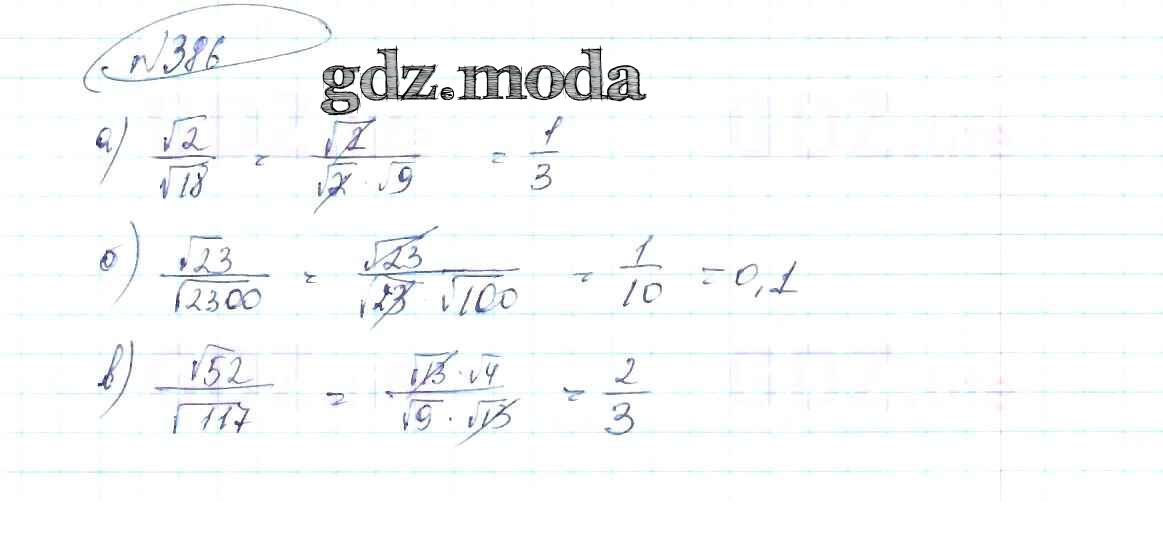 №386
gdz.moda
а) √2/√18 = √2/(√2 · √9) = 1/3
б) √23/√2300 = √23/(√23 · √100) = 1/10 = 0,1
в) √52/√117 = (√13 · √4)/(√9 · √13) = 2/3